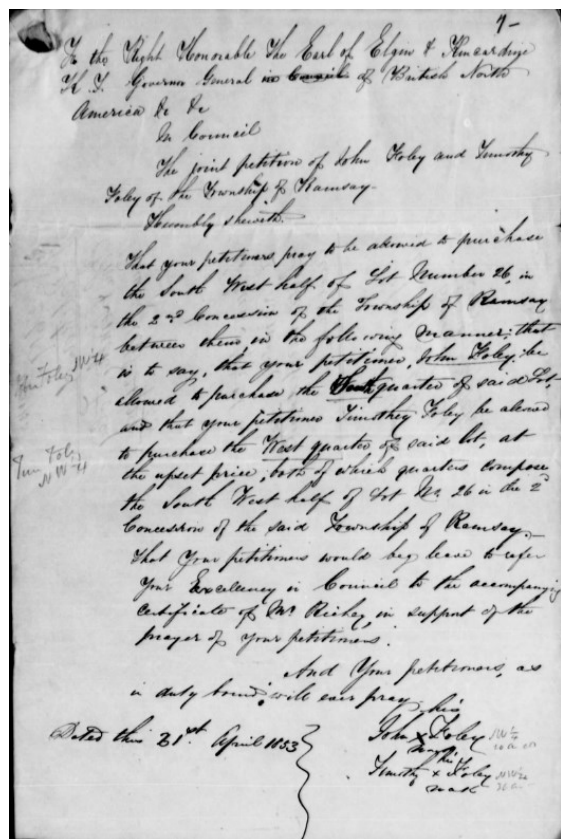 7-
To the Right Honorable The Earl of Elgin & Kincardine
K. T. Governor General in Council of British North
America &c &c
In Council
The joint petition of John Foley and Timothy
Foley of the Township of Ramsay.
Humbly sheweth.
That your petitioners pray to be allowed to purchase
the South West half of Lot Number 26, in
the 2nd Concession of the Township of Ramsay
between them, in the following manner; that
is to say, that your petitioner, John Foley, be
allowed to purchase the South quarter of said Lot,
and that your petitioner Timothy Foley be allowed
to purchase the West quarter of said lot, at
the upset price, both of which quarters compose
the South West half of Lot No. 26 in the 2d
Concession of the said Township of Ramsay
That Your petitioners would beg leave to refer
Your Excellency in Council to the accompanying
Certificate of Mr Richey, in support of the
prayer of your petitioners.
And Your petitioners, as
in duty bound, will ever pray.
Dated this 21st April 1853
his
John x Foley
mark
his
Timothy x Foley
mark
Foley
Tim Foley